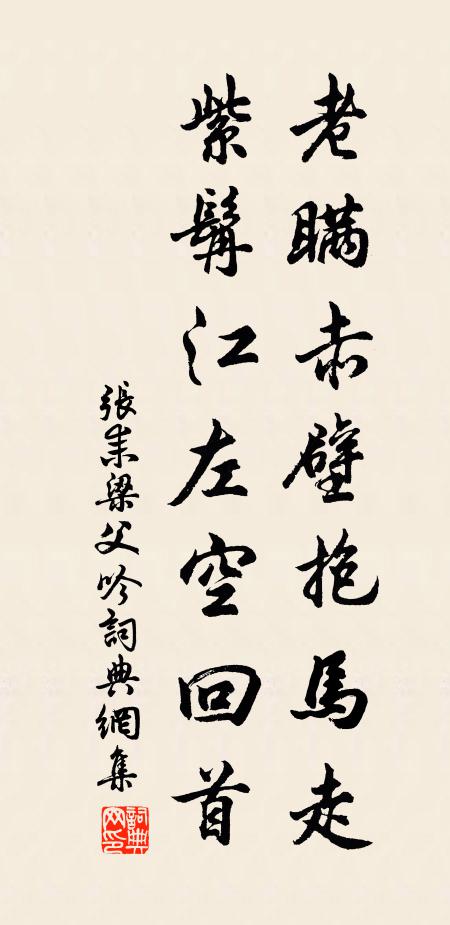 老瞞赤壁抱馬走
紫髯江左空回首
張耒梁父吟詞典網集
詞典网印